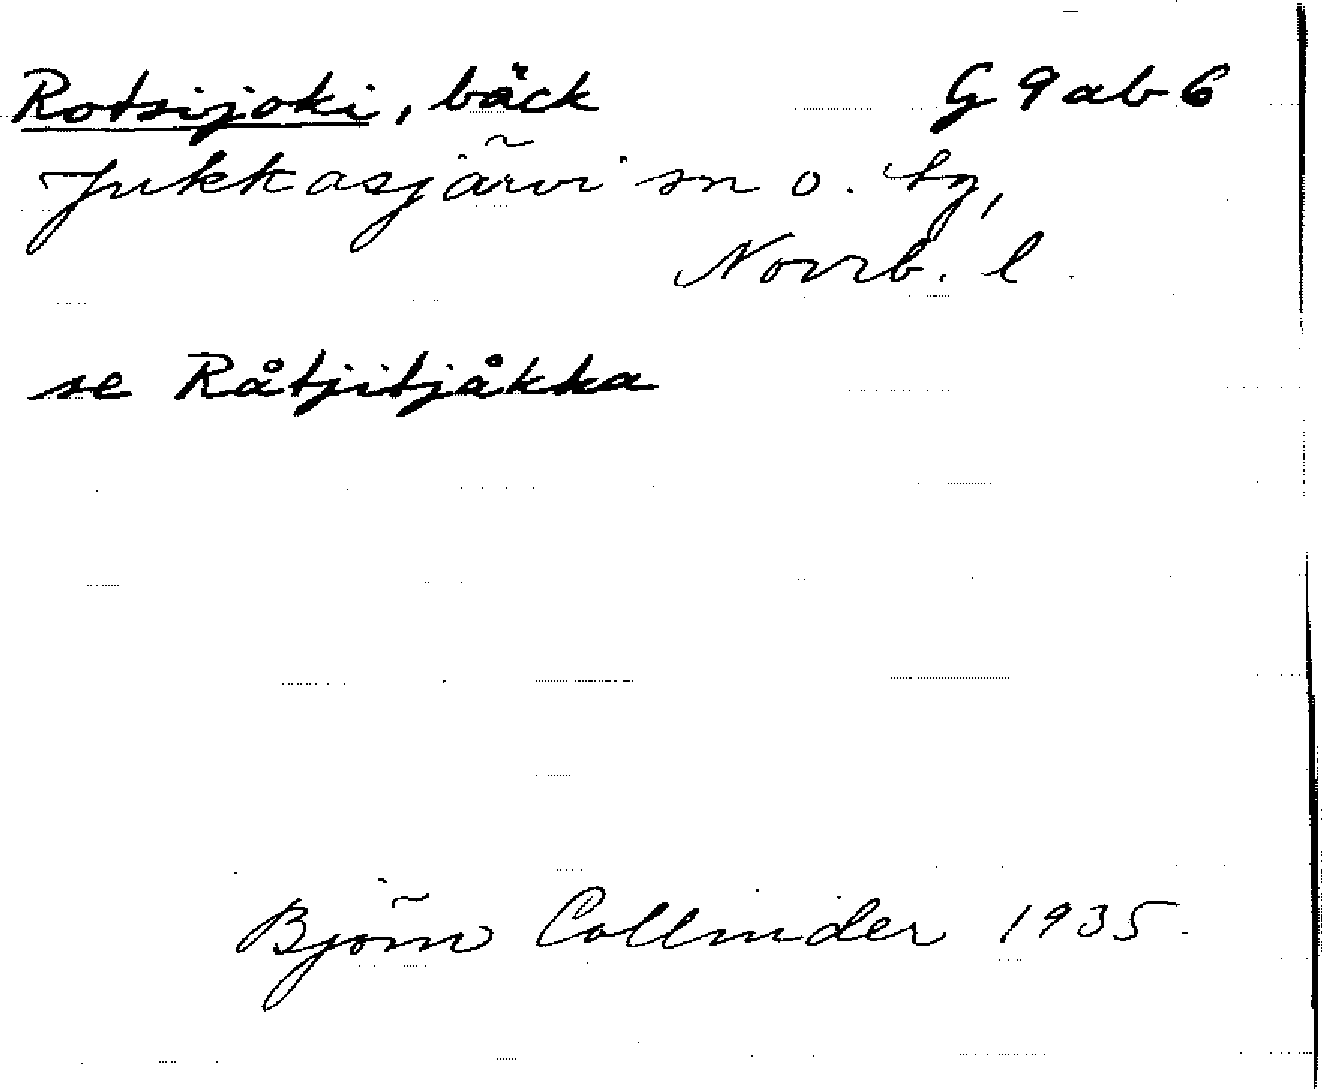 Rotsijoki, bäck G 9 ab 6
Jukkasjärvi sn o. tg,
Norrb. l.
se Råtjitjåkka
Björn Collinder 1935.